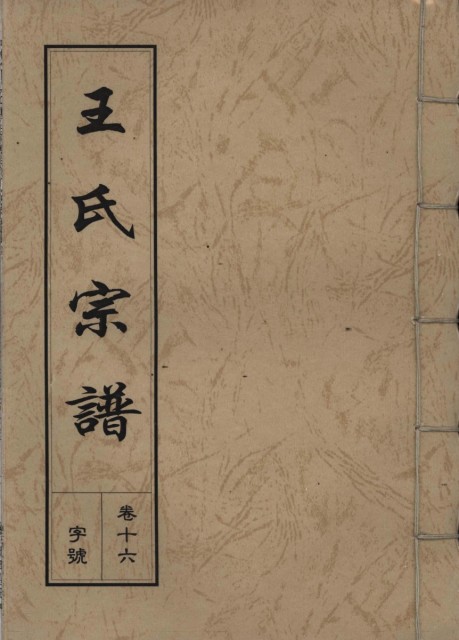 王氏宗譜
卷十六
字號